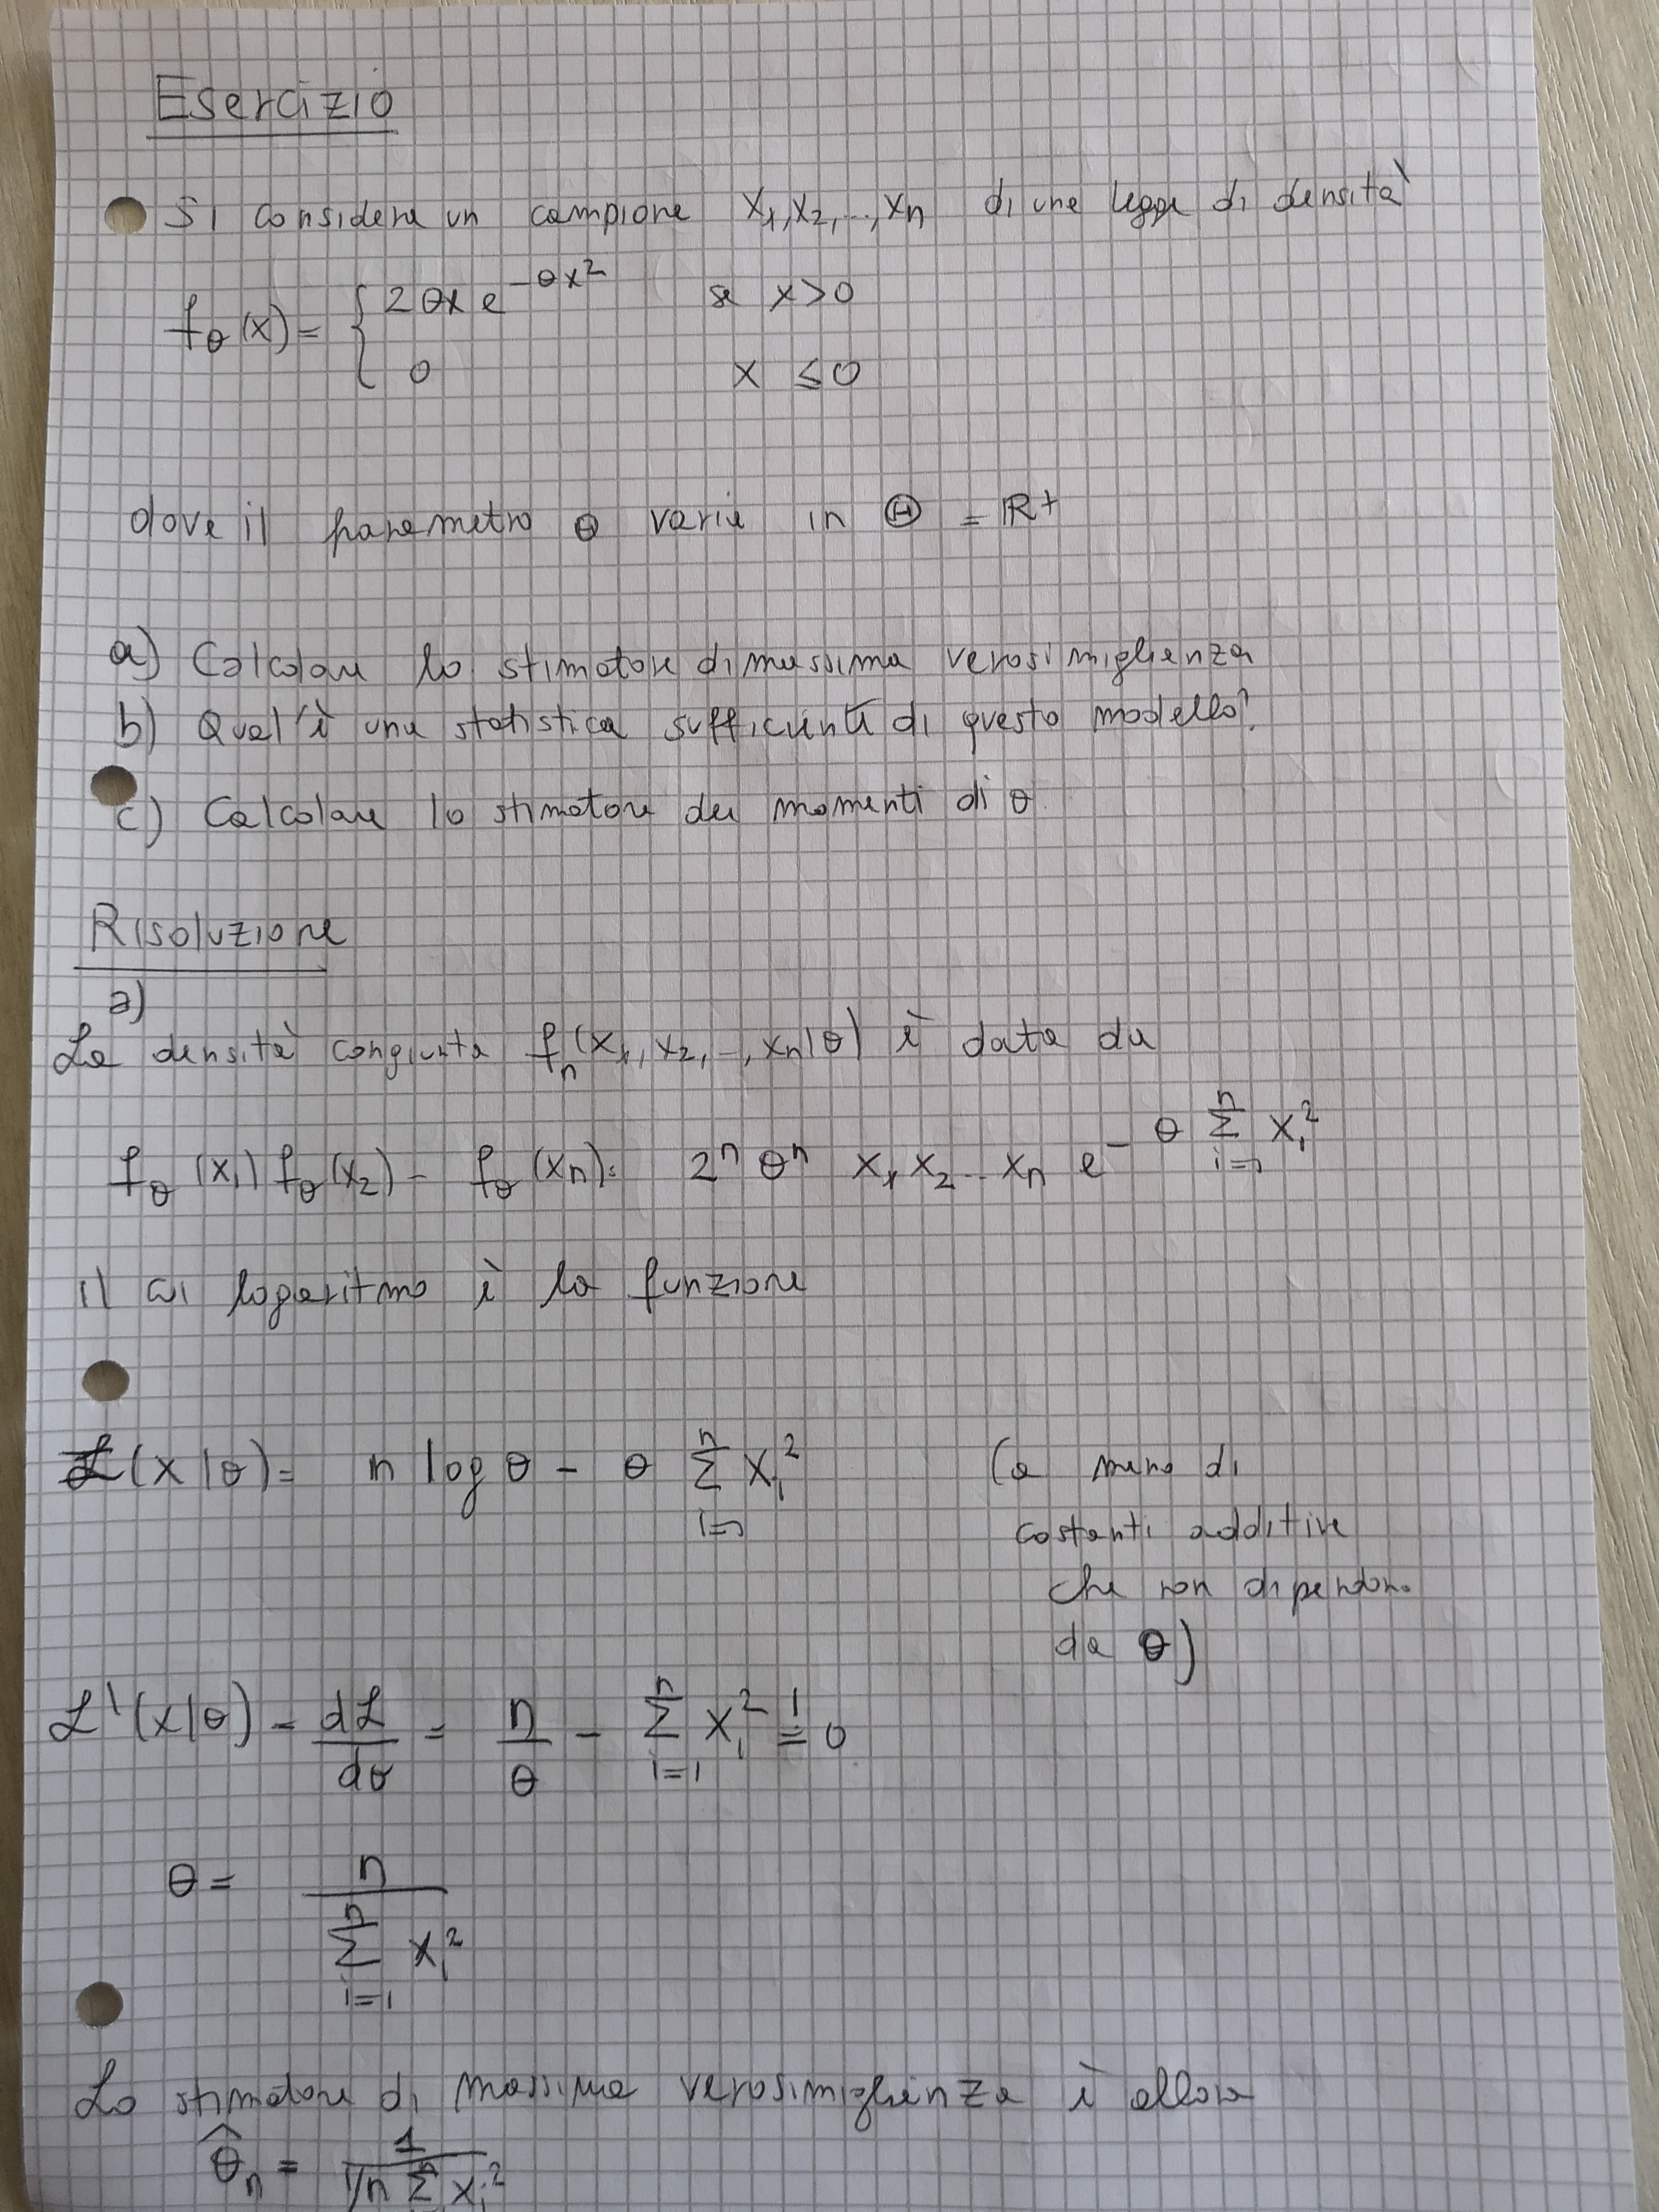 Esercizio
Si considera un campione X₁,X₂,...,Xn di una legge di densità
fθ(x) = { 2θx e^{-θx²} se x>0
0 x ≤0
dove il parametro θ varia in Θ = R+
a) Calcolare lo stimatore di massima verosimiglianza
b) Qual'è una statistica sufficiente di questo modello?
c) Calcolare lo stimatore dei momenti di θ
Risoluzione
a)
La densità congiunta fn(x₁,x₂,..,xn|θ) è data da
fθ(x₁) fθ(x₂) - fθ(xn) = 2^n θ^n x₁ x₂ .. xn e^{-θ Σ_{i=1}^n xi²}
il cui logaritmo è la funzione
L(x|θ) = n log θ - θ Σ_{i=1}^n xi² (a meno di
costanti additive
che non dipendono
da θ)
L'(x|θ) = dL/dθ = n/θ - Σ_{i=1}^n xi² =! 0
θ = n / Σ_{i=1}^n xi²
Lo stimatore di massima verosimiglianza è allora
θ̂n = 1 / (1/n Σ^n xi²)